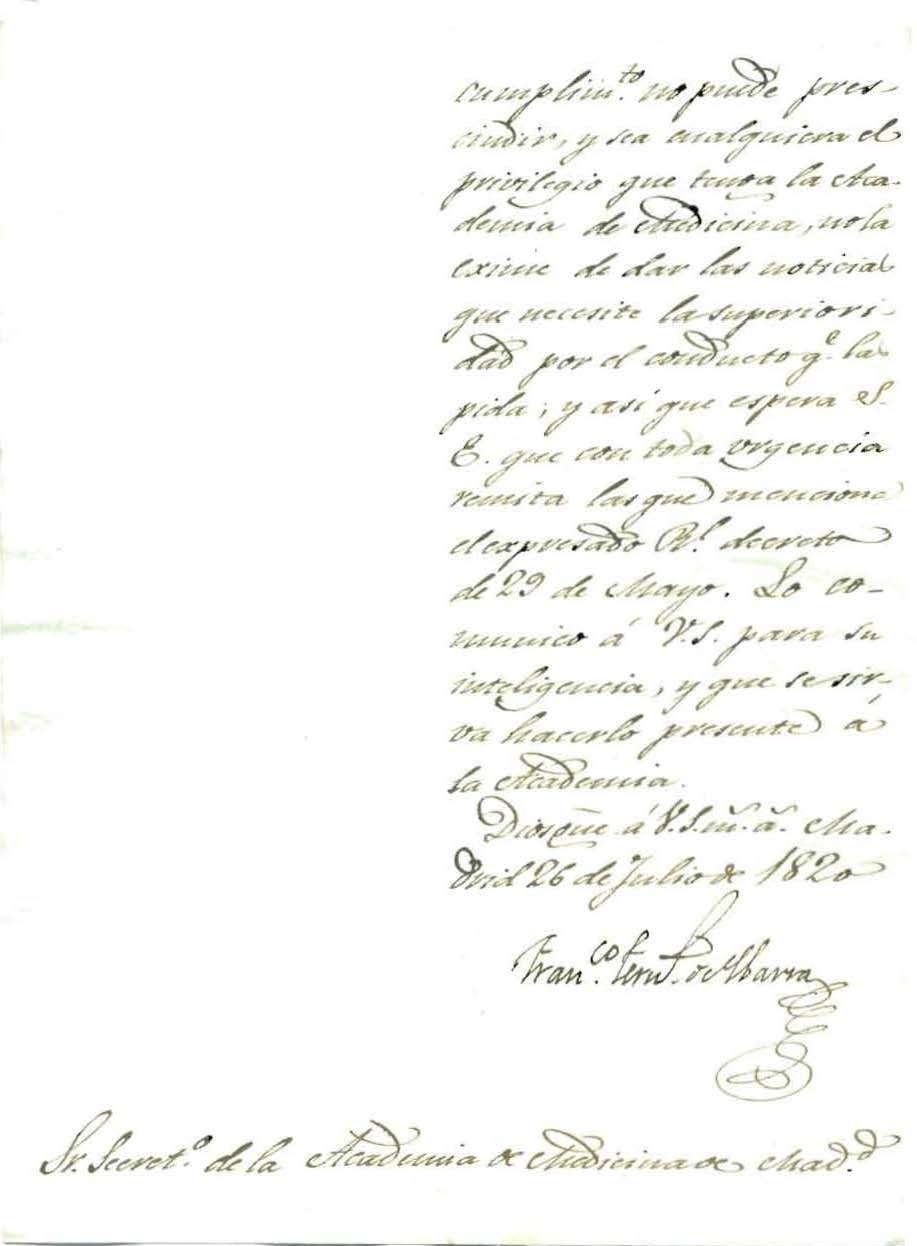 cumplim.to no puede pres-
cindir, y sea cualquiera el
privilegio que tenga la Aca-
demia de Medicina, no la
exime de dar las noticias
que necesite la superiori-
dad por el conducto q.e las
pida; y así que espera S.
E. que con toda urgencia
remita las que menciona
el expresado R.l decreto
de 29 de Mayo. Lo co-
munico á V.S. para su
inteligencia, y que se sir-
va hacerlo presente á
la Academia.
Dios gue. á V.S. m.s a.s Ma-
drid 26 de Julio de 1820
Fran.co Fern.z de Ibarra
Sr. Secret.o de la Academia de Medicina de Mad.d